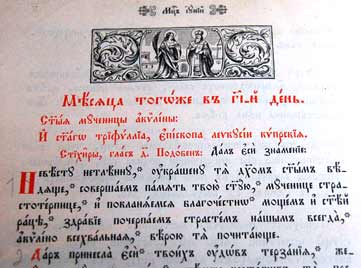 Мцⷭ҇ъ і҆ꙋ́нїй
Мѣ́сѧца тогѡ́же въ г҃і-й де́нь.
Ст҃ы́ѧ мꙋ́ченицы а҆кѷлі́ны:
И҆ ст҃а́гѡ трїфѵ́ллїа, є҆пі́скопа леѵкꙋсі́и кѵ́прскїѧ.
Стїхи̑ры, гла́съ д҃. Подо́бенъ: Да́лъ є҆сѝ зна́менїе:
Невѣ́стꙋ нетлѣ́ннꙋ, ᲂу҆кра́шенꙋ тѧ̀ дх҃омъ ст҃ы́мъ вѣ́-
дѧще, * соверша́емъ па́мѧть твою̀ ст҃ꙋ́ю, мꙋ́ченице стра-
стоте́рпице, * и҆ покланѧ́емсѧ благоче́стнѡ моще́мъ и҆ ст҃ѣ́й
ра́цѣ, * здра́вїе почерпа́емъ страсте́мъ на́шымъ всегда̀,
а҆кѷлі́но всехва́льнаѧ, * вѣ́рою тѧ̀ почита́юще.
Да́ръ принесла̀ є҆сѝ * твои́хъ ᲂу҆́дѡвъ терза̑нїѧ, * же-